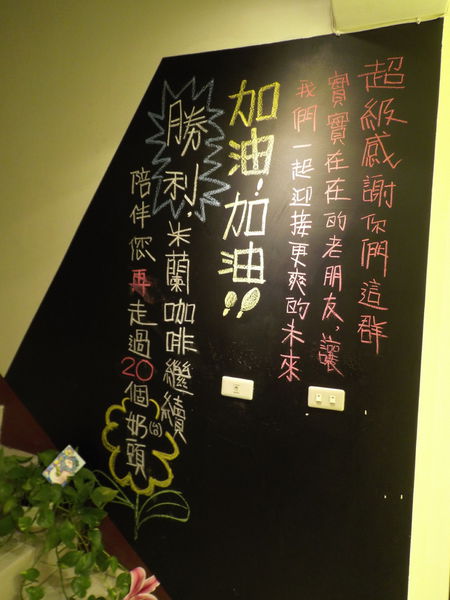 超級感謝你們這群
實實在在的老朋友，讓
我們一起迎接更爽的未來
加油！加油！！
勝利，米蘭咖啡繼續
陪伴您再走過20個奶(台)頭